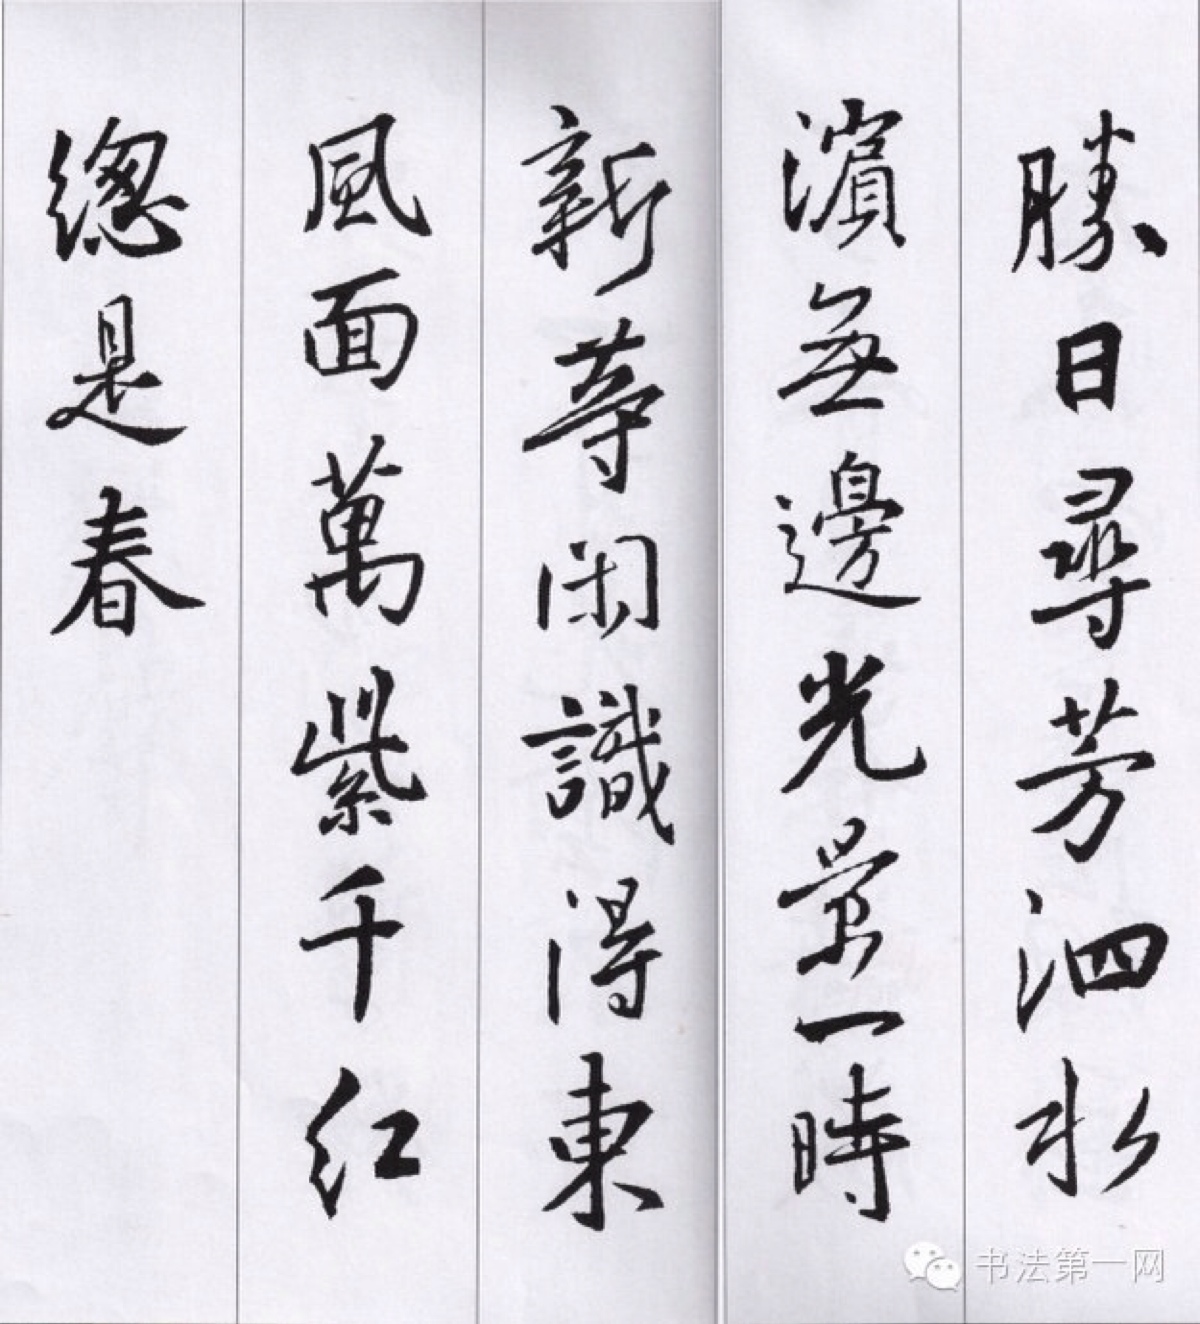 勝日尋芳泗水
濵無邊光景一時
新等閑識得東
風面萬紫千红
總是春
书法第一网